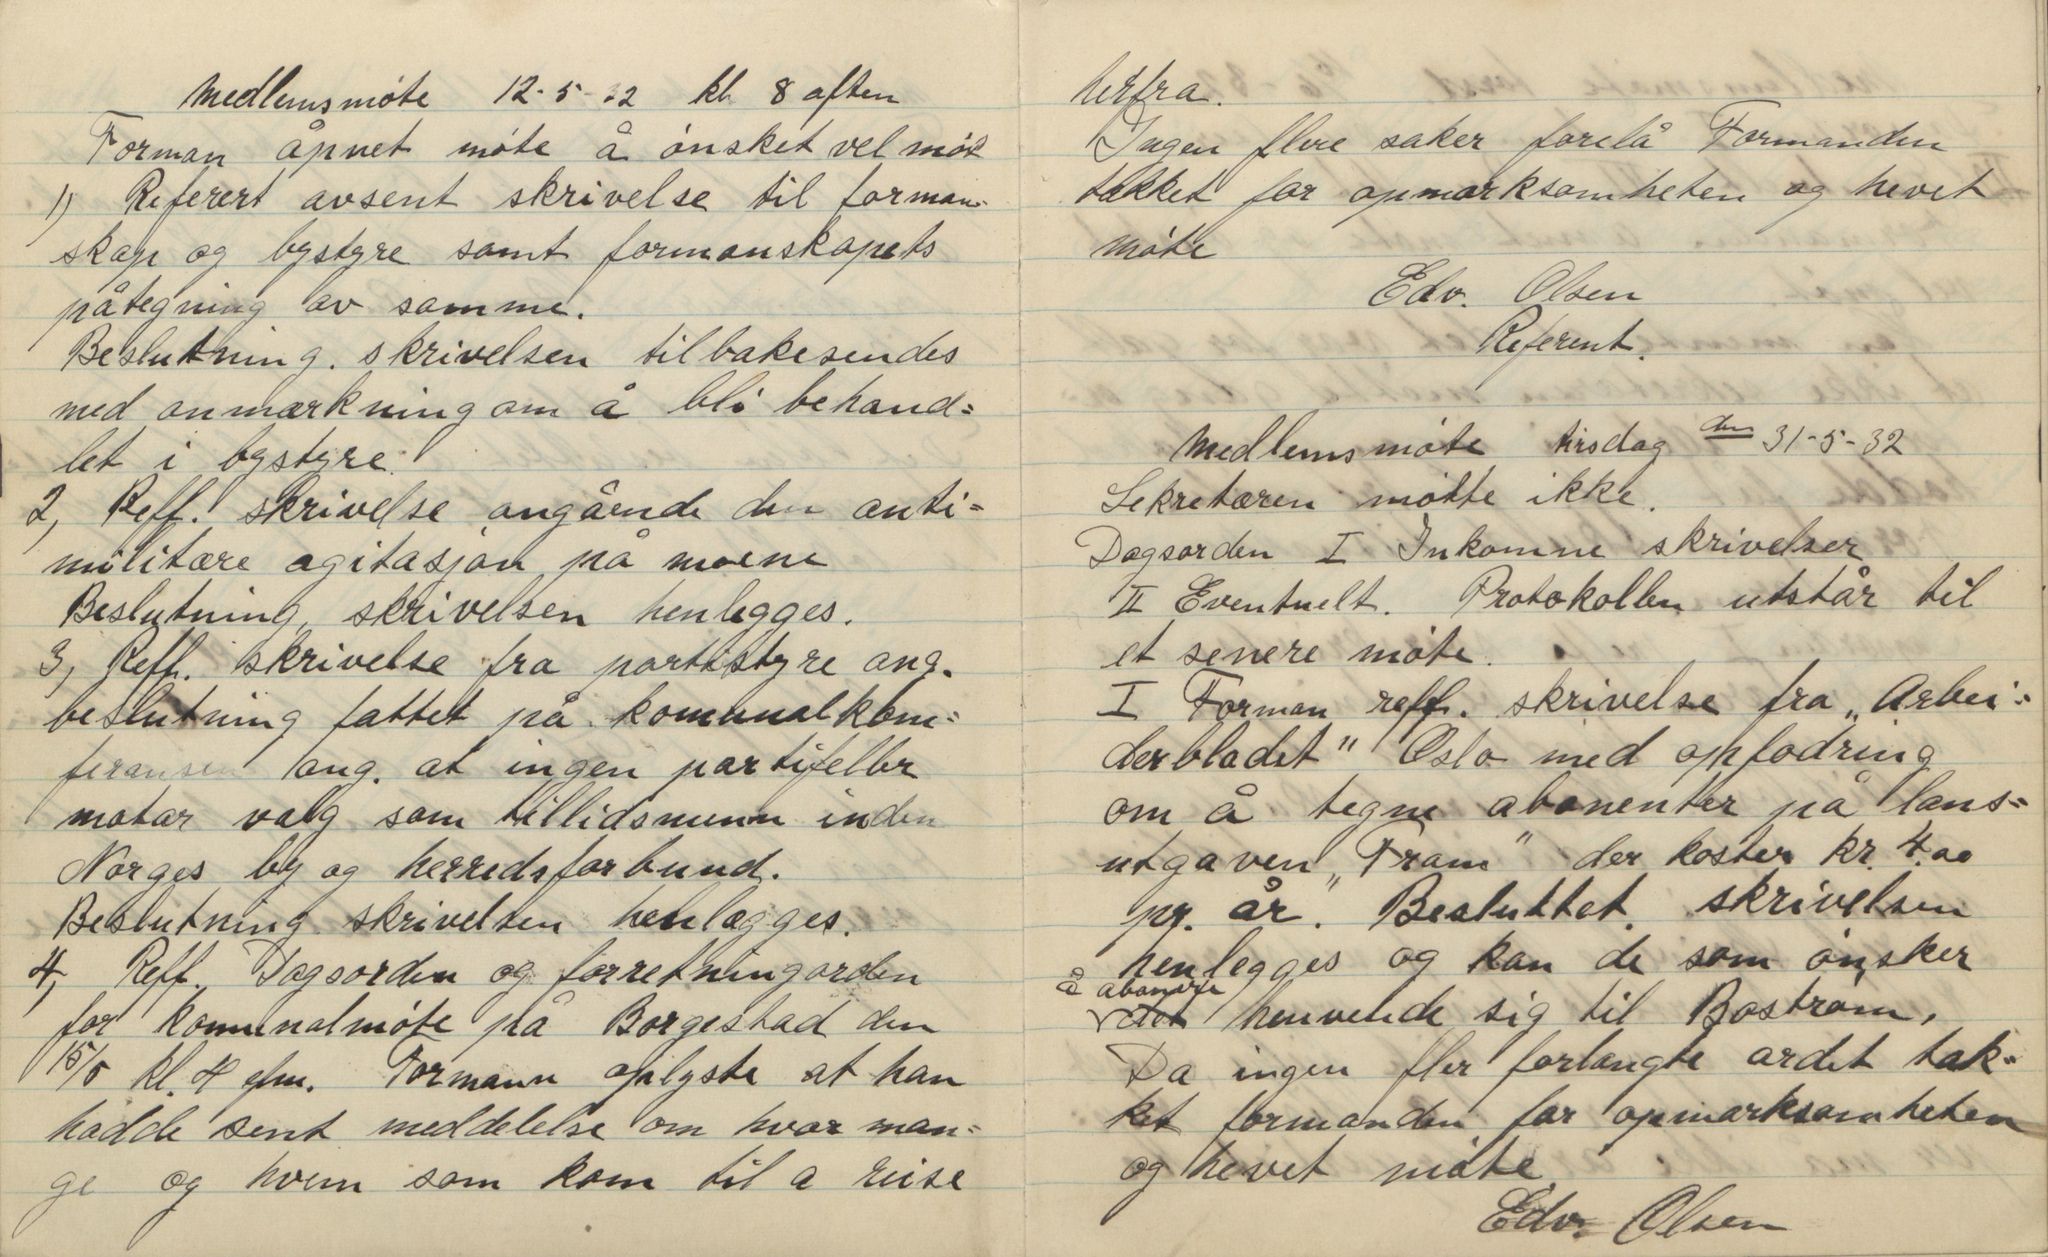 Medlemsmöte 12-5-32 kl 8 aften
Forman åpnet möte å önsket vel möt
1) Referert avsent skrivelse til forman-
skap og bystyre samt formanskapets
påtegning av samme.
Beslutning. skrivelsen tilbakesendes
med anmærkning om å bli behand=
let i bystyre.
2, Reff. skrivelse angående den anti=
militære agitasjon på moene
Beslutning, skrivelsen henlegges.
3, Reff. skrivelse fra partistyre ang.
beslutning fattet på komunalkon=
feransen ang. at ingen partifeller
motar valg som tillidsmenn inden
Norges by og herredsforbund.
Beslutning skrivelsen henlægges.
4, Reff. Dagsorden og forretningorden
for komunalmöte på Borgestad den
15/5 kl. 4 efm. Formann oplyste at han
hadde sent meddelelse om hvor man=
ge og hvem som kom til a reise
herfra.
Ingen flere saker forelå Formanden
takket for opmærksomheten og hevet
möte
Edv. Olsen
Referent.
Medlemsmöte tirsdag den 31-5-32
Sekretæren mötte ikke.
Dagsorden I Inkomne skrivelser
II Eventuelt. Protokollen utstår til
et senere möte.
I Forman reff. skrivelse fra „Arbei=
derbladet" Oslo med opfodring
om å tegne abonenter på lans=
utgaven „Fram" der koster kr. 4.00
pr. år". Besluttet. skrivelsen
henlegges og kan de som önsker
å abonere
henvende sig til Boström.
Da ingen fler forlangte ordet tak=
ket formanden for opmærksomheten
og hevet möte
Edv. Olsen